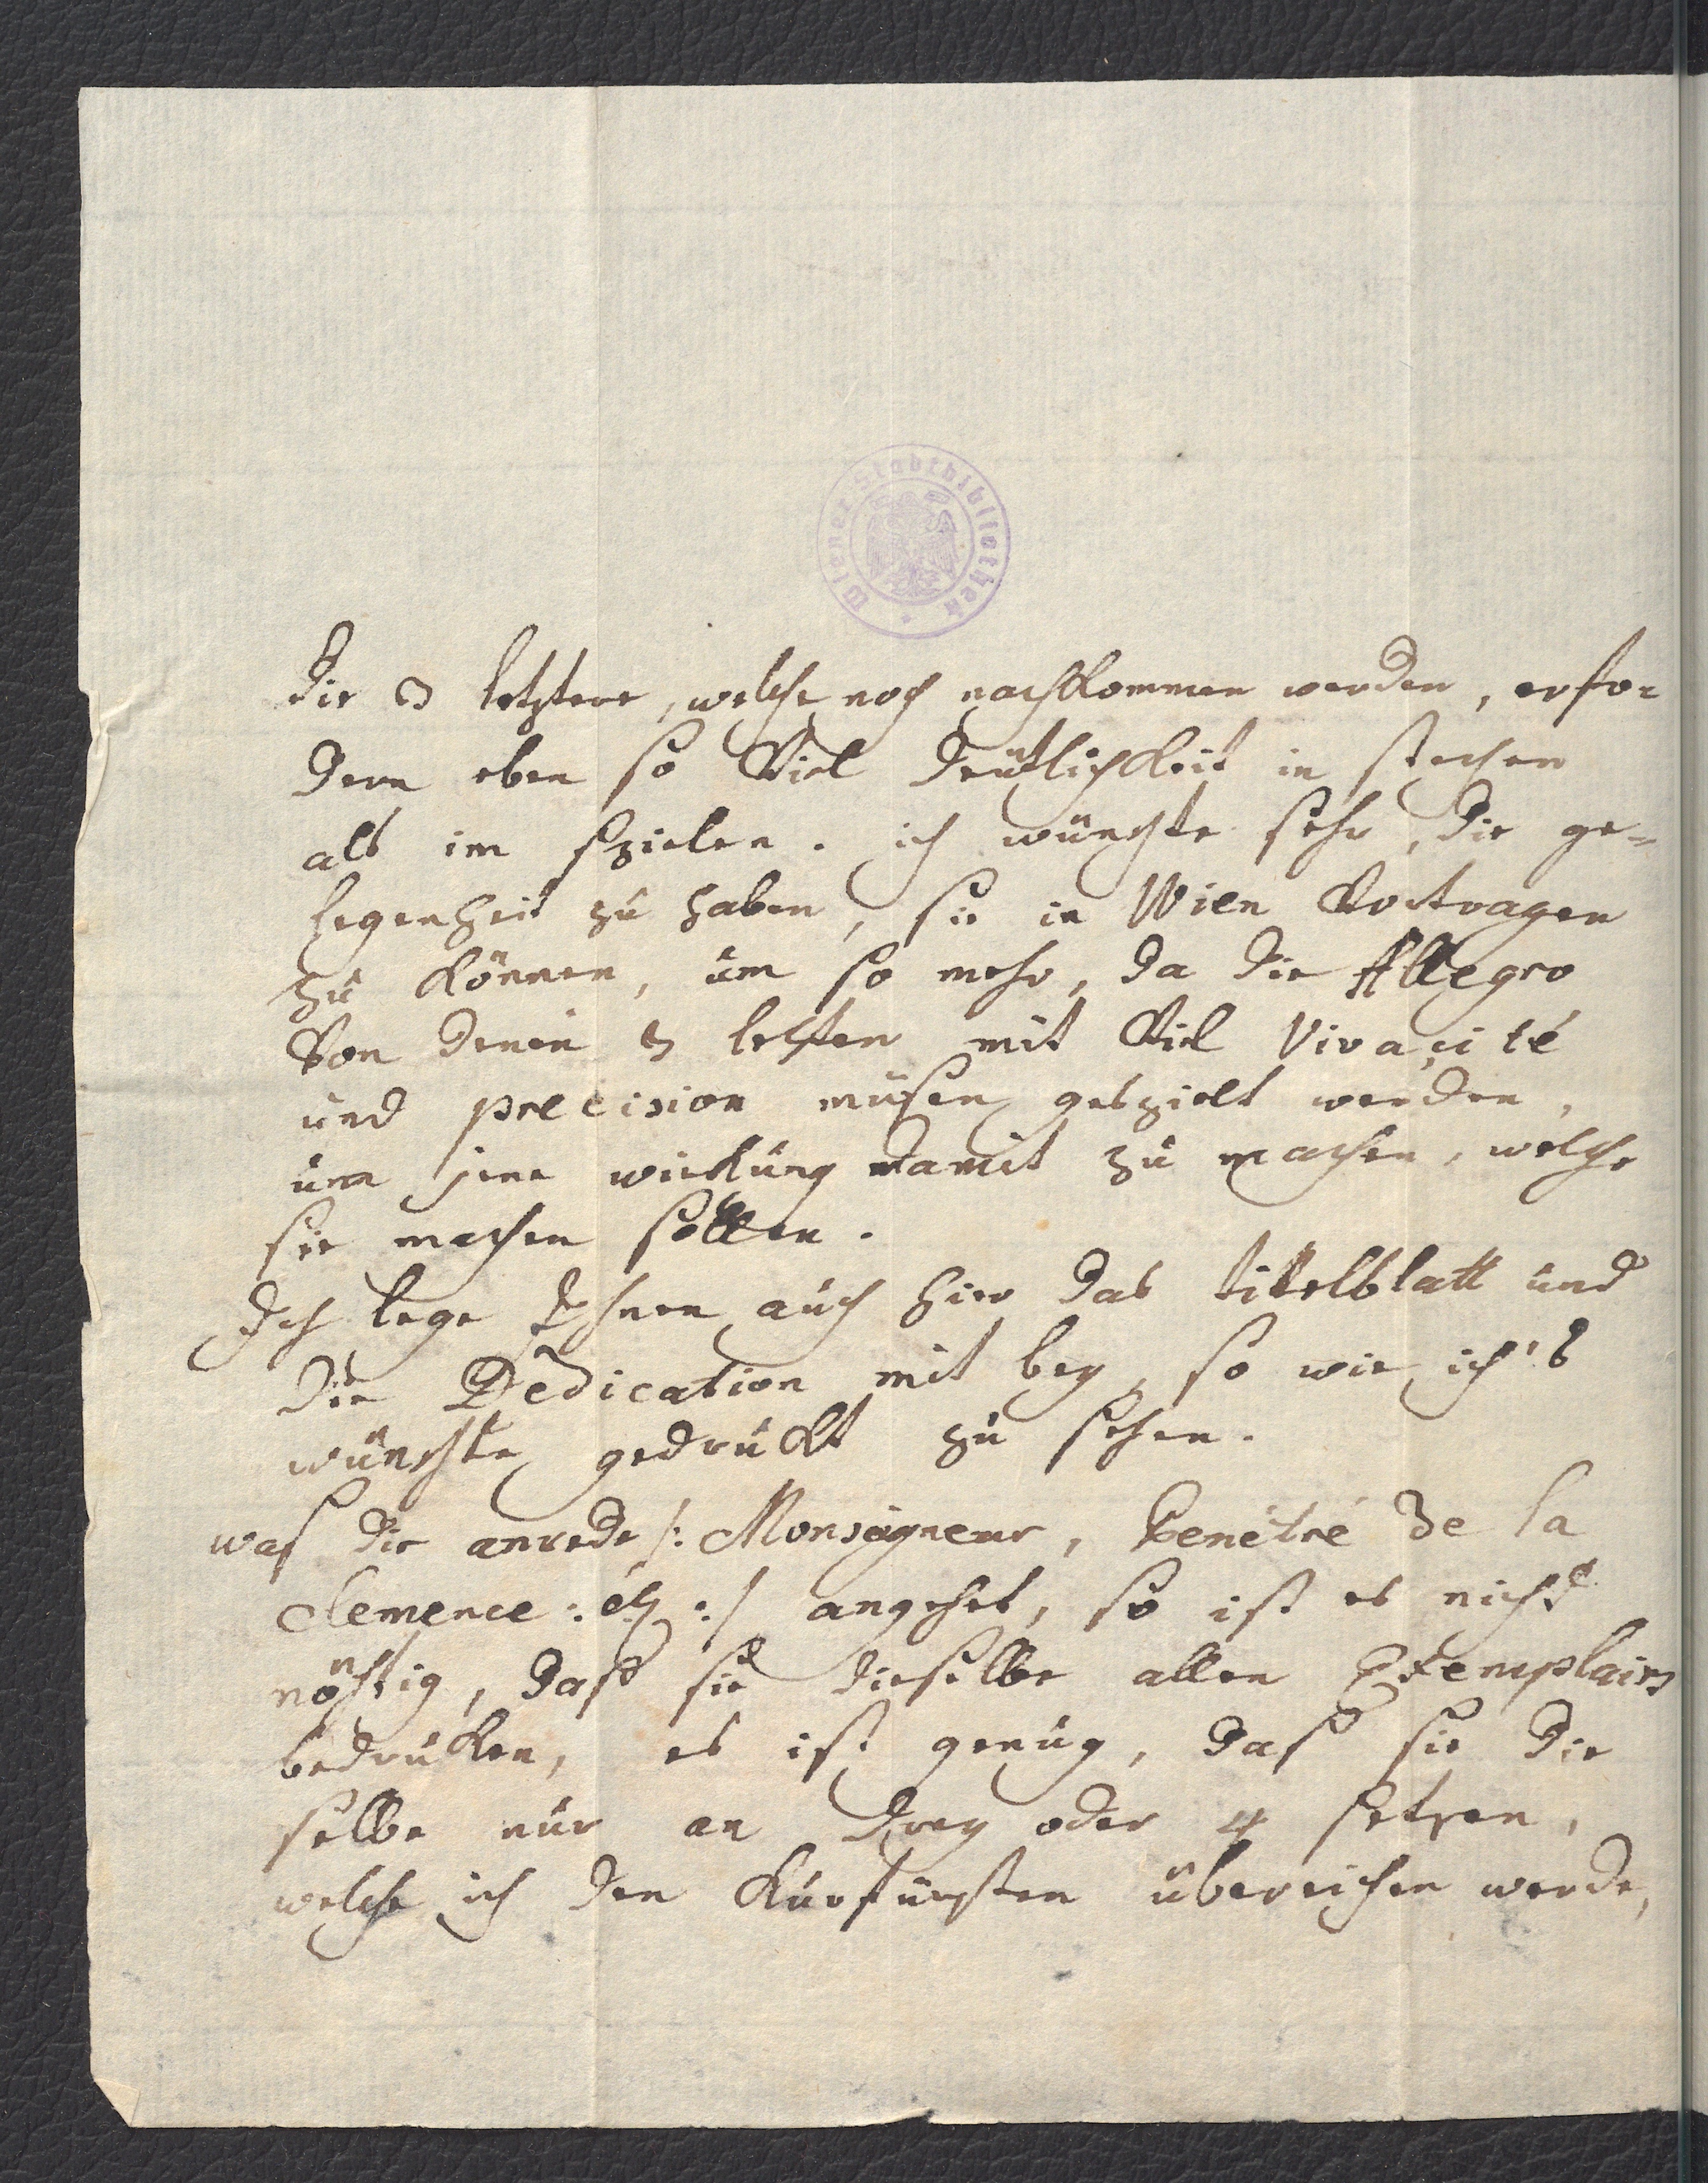 Wiener Stadtbibliothek
die 3 letztere, welche noch nachkommen werden, erfo-
dern eben so Viel deutlichkeit in stechen
als im spielen. ich wünschte sehr, die ge-
legenheit zu haben, sie in Wien Vortragen
zu können, um so mehr, da die Allegro
Von denen 3 letsten mit Viel Vivacité
und precision müßen gespielt werden,
um jene wirkung damit zu machen, welche
sie machen sollen.
Ich lege Ihnen auch hier das titelblatt und
die Dedication mit bey, so wie ich's
wünschte gedruckt zu sehen.
was die anrede /: Monseigneur, Penétré de la
Clemence : etz :/ angehet, so ist es nicht
nöthig, daß sie dieselbe allen Exemplairs
bedrucken, es ist genug, daß sie die
selbe nur an drey oder 4 setzen,
welche ich den Kurfürsten übereichen werde,